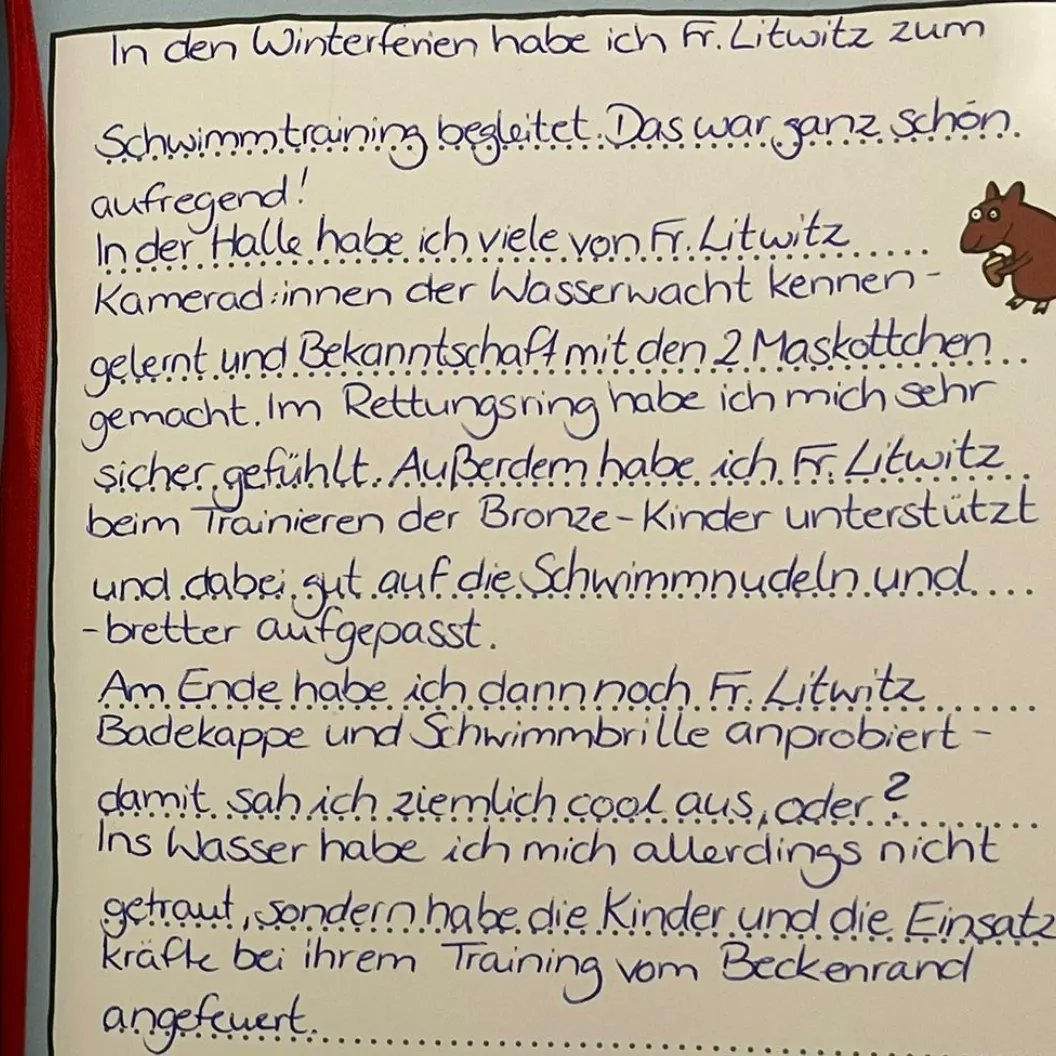 In den Winterferien habe ich Fr. Litwitz zum
Schwimmtraining begleitet. Das war ganz schön
aufregend!
In der Halle habe ich viele von Fr. Litwitz
Kamerad:innen der Wasserwacht kennen-
gelernt und Bekanntschaft mit den 2 Maskottchen
gemacht. Im Rettungsring habe ich mich sehr
sicher gefühlt. Außerdem habe ich Fr. Litwitz
beim Trainieren der Bronze-Kinder unterstützt
und dabei gut auf die Schwimmnudeln und
-bretter aufgepasst.
Am Ende habe ich dann noch Fr. Litwitz
Badekappe und Schwimmbrille anprobiert -
damit sah ich ziemlich cool aus, oder?
Ins Wasser habe ich mich allerdings nicht
getraut, sondern habe die Kinder und die Einsatz
kräfte bei ihrem Training vom Beckenrand
angefeuert.